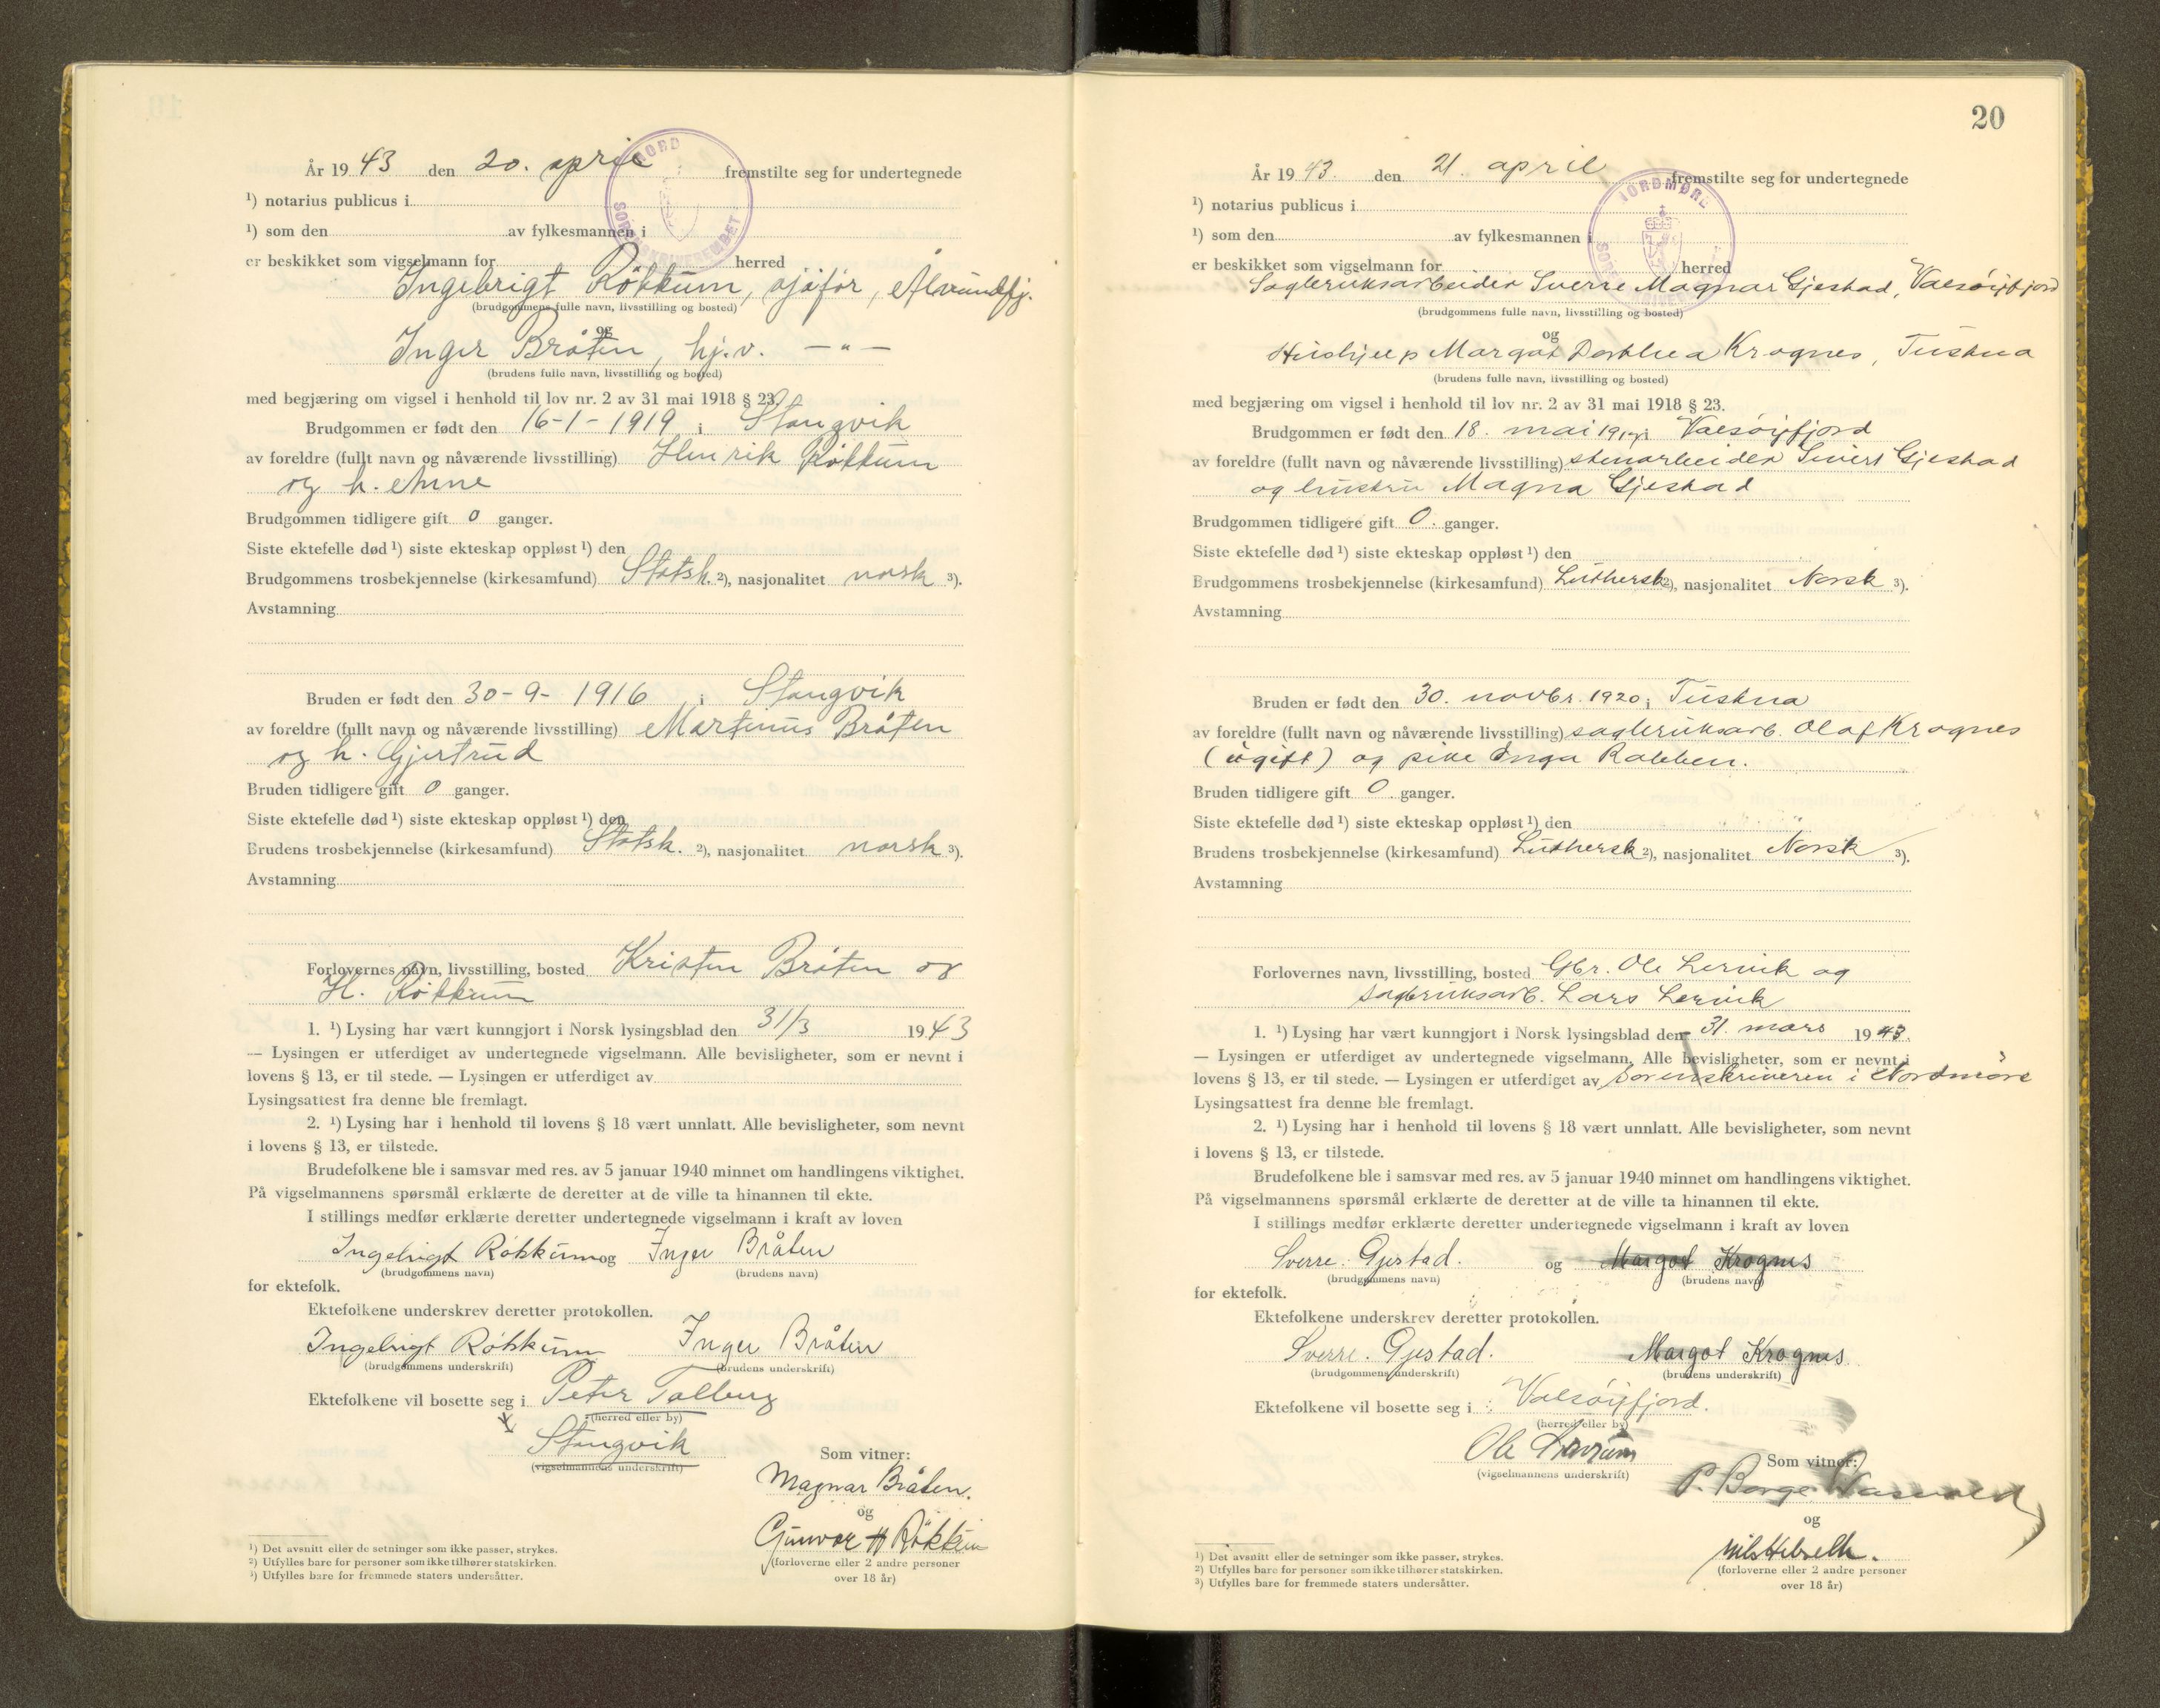 År 1943 den 20. april fremstilte seg for undertegnede
¹) notarius publicus i
¹) som den av fylkesmannen i
er beskikket som vigselmann for herred
Ingebrigt Røkkum, sjåfør, Ålvundfj.
(brudgommens fulle navn, livsstilling og bosted)
og
Inger Bråten, hj.v. —"—
(brudens fulle navn, livsstilling og bosted)
med begjæring om vigsel i henhold til lov nr. 2 av 31 mai 1918 § 23.
Brudgommen er født den 16-1-1919 i Stangvik
av foreldre (fullt navn og nåværende livsstilling) Henrik Røkkum
og h. Anne
Brudgommen tidligere gift 0 ganger.
Siste ektefelle død ¹) siste ekteskap oppløst ¹) den
Brudgommens trosbekjennelse (kirkesamfund) Statsk. ²), nasjonalitet norsk ³).
Avstamning
Bruden er født den 30-9-1916 i Stangvik
av foreldre (fullt navn og nåværende livsstilling) Martinus Bråten
og h. Gjertrud
Bruden tidligere gift 0 ganger.
Siste ektefelle død ¹) siste ekteskap oppløst ¹) den
Brudens trosbekjennelse (kirkesamfund) Statsk. ²), nasjonalitet norsk ³).
Avstamning
Forlovernes navn, livsstilling, bosted Kristen Bråten og
H. Røkkum
1. ¹) Lysing har vært kunngjort i Norsk lysingsblad den 31/3 1943
— Lysingen er utferdiget av undertegnede vigselmann. Alle bevisligheter, som er nevnt i
lovens § 13, er til stede. — Lysingen er utferdiget av
Lysingsattest fra denne ble fremlagt.
2. ¹) Lysing har i henhold til lovens § 18 vært unnlatt. Alle bevisligheter, som nevnt
i lovens § 13, er tilstede.
Brudefolkene ble i samsvar med res. av 5 januar 1940 minnet om handlingens viktighet.
På vigselmannens spørsmål erklærte de deretter at de ville ta hinannen til ekte.
I stillings medfør erklærte deretter undertegnede vigselmann i kraft av loven
Ingebrigt Røkkum og Inger Bråten
(brudgommens navn) (brudens navn)
for ektefolk.
Ektefolkene underskrev deretter protokollen.
Ingebrigt Røkkum Inger Bråten
(brudgommens underskrift) (brudens underskrift)
Ektefolkene vil bosette seg i Peter Talberg
(herred eller by)
Stangvik
(vigselmannens underskrift)
Som vitner:
Magnar Bråten.
og
Gunvor H Røkkum
(forloverne eller 2 andre personer
over 18 år)
¹) Det avsnitt eller de setninger som ikke passer, strykes.
²) Utfylles bare for personer som ikke tilhører statskirken.
³) Utfylles bare for fremmede staters undersåtter.
20
År 1943. den 21. april fremstilte seg for undertegnede
¹) notarius publicus i
¹) som den av fylkesmannen i
er beskikket som vigselmann for herred
NORDMØRE
Sagbruksarbeider Sverre Magnar Gjestad, Valsøyfjord
(brudgommens fulle navn, livsstilling og bosted)
og
Hushjelp Margot Dorthea Krognes, Tustna
(brudens fulle navn, livsstilling og bosted)
med begjæring om vigsel i henhold til lov nr. 2 av 31 mai 1918 § 23.
Brudgommen er født den 18. mai i Valsøyfjord
av foreldre (fullt navn og nåværende livsstilling) stenarbeider Sivert Gjestad
og hustru Magna Gjestad
Brudgommen tidligere gift 0. ganger.
Siste ektefelle død ¹) siste ekteskap oppløst ¹) den
Brudgommens trosbekjennelse (kirkesamfund) Luthersk ²), nasjonalitet Norsk ³).
Avstamning
Bruden er født den 30. novbr. 1920 i Tustna
av foreldre (fullt navn og nåværende livsstilling) sagbruksarb. Olaf Krognes
(ugift) og pike Inga Rabben.
Bruden tidligere gift 0 ganger.
Siste ektefelle død ¹) siste ekteskap oppløst ¹) den
Brudens trosbekjennelse (kirkesamfund) Luthersk ²), nasjonalitet Norsk ³).
Avstamning
Forlovernes navn, livsstilling, bosted Gbr. Ole Lervik og
sagbruksarb. Lars Lervik
1. ¹) Lysing har vært kunngjort i Norsk lysingsblad den 31. mars 1943.
— Lysingen er utferdiget av undertegnede vigselmann. Alle bevisligheter, som er nevnt i
lovens § 13, er til stede. — Lysingen er utferdiget av Sorenskriveren i Nordmøre
Lysingsattest fra denne ble fremlagt.
2. ¹) Lysing har i henhold til lovens § 18 vært unnlatt. Alle bevisligheter, som nevnt
i lovens § 13, er tilstede.
Brudefolkene ble i samsvar med res. av 5 januar 1940 minnet om handlingens viktighet.
På vigselmannens spørsmål erklærte de deretter at de ville ta hinannen til ekte.
I stillings medfør erklærte deretter undertegnede vigselmann i kraft av loven
Sverre. Gjestad. og Margot Krognes
(brudgommens navn) (brudens navn)
for ektefolk.
Ektefolkene underskrev deretter protokollen.
Sverre. Gjestad. Margot Krognes
(brudgommens underskrift) (brudens underskrift)
Ektefolkene vil bosette seg i Valsøyfjord.
(herred eller by)
Ole
(vigselmannens underskrift)
Som vitner:
P. Borge
og
Nils
(forloverne eller 2 andre personer
over 18 år)
¹) Det avsnitt eller de setninger som ikke passer, strykes.
²) Utfylles bare for personer som ikke tilhører statskirken.
³) Utfylles bare for fremmede staters undersåtter.